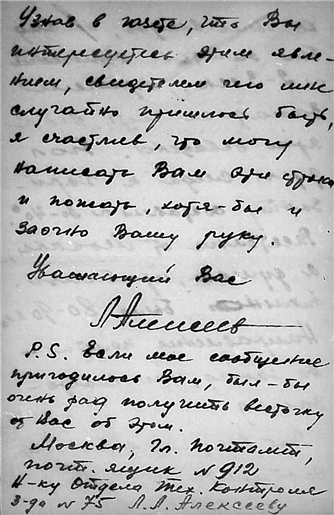 Узнав в газете, что Вы
интересуетесь этим явле-
нием, свидетелем чего мне
случайно пришлось быть,
я счастлив, что могу
написать Вам эти строки
и пожать, хотя-бы и
заочно Вашу руку.
Уважающий Вас
ЛАлексеев
P.S. Если мое сообщение
пригодилось Вам, был-бы
очень рад получить весточку
от Вас об этом.
Москва, Гл. Почтамт,
почт. ящик N 912
Н-ку Отдела Тех. Контроля
з-да N 75 Л.Л. Алексееву